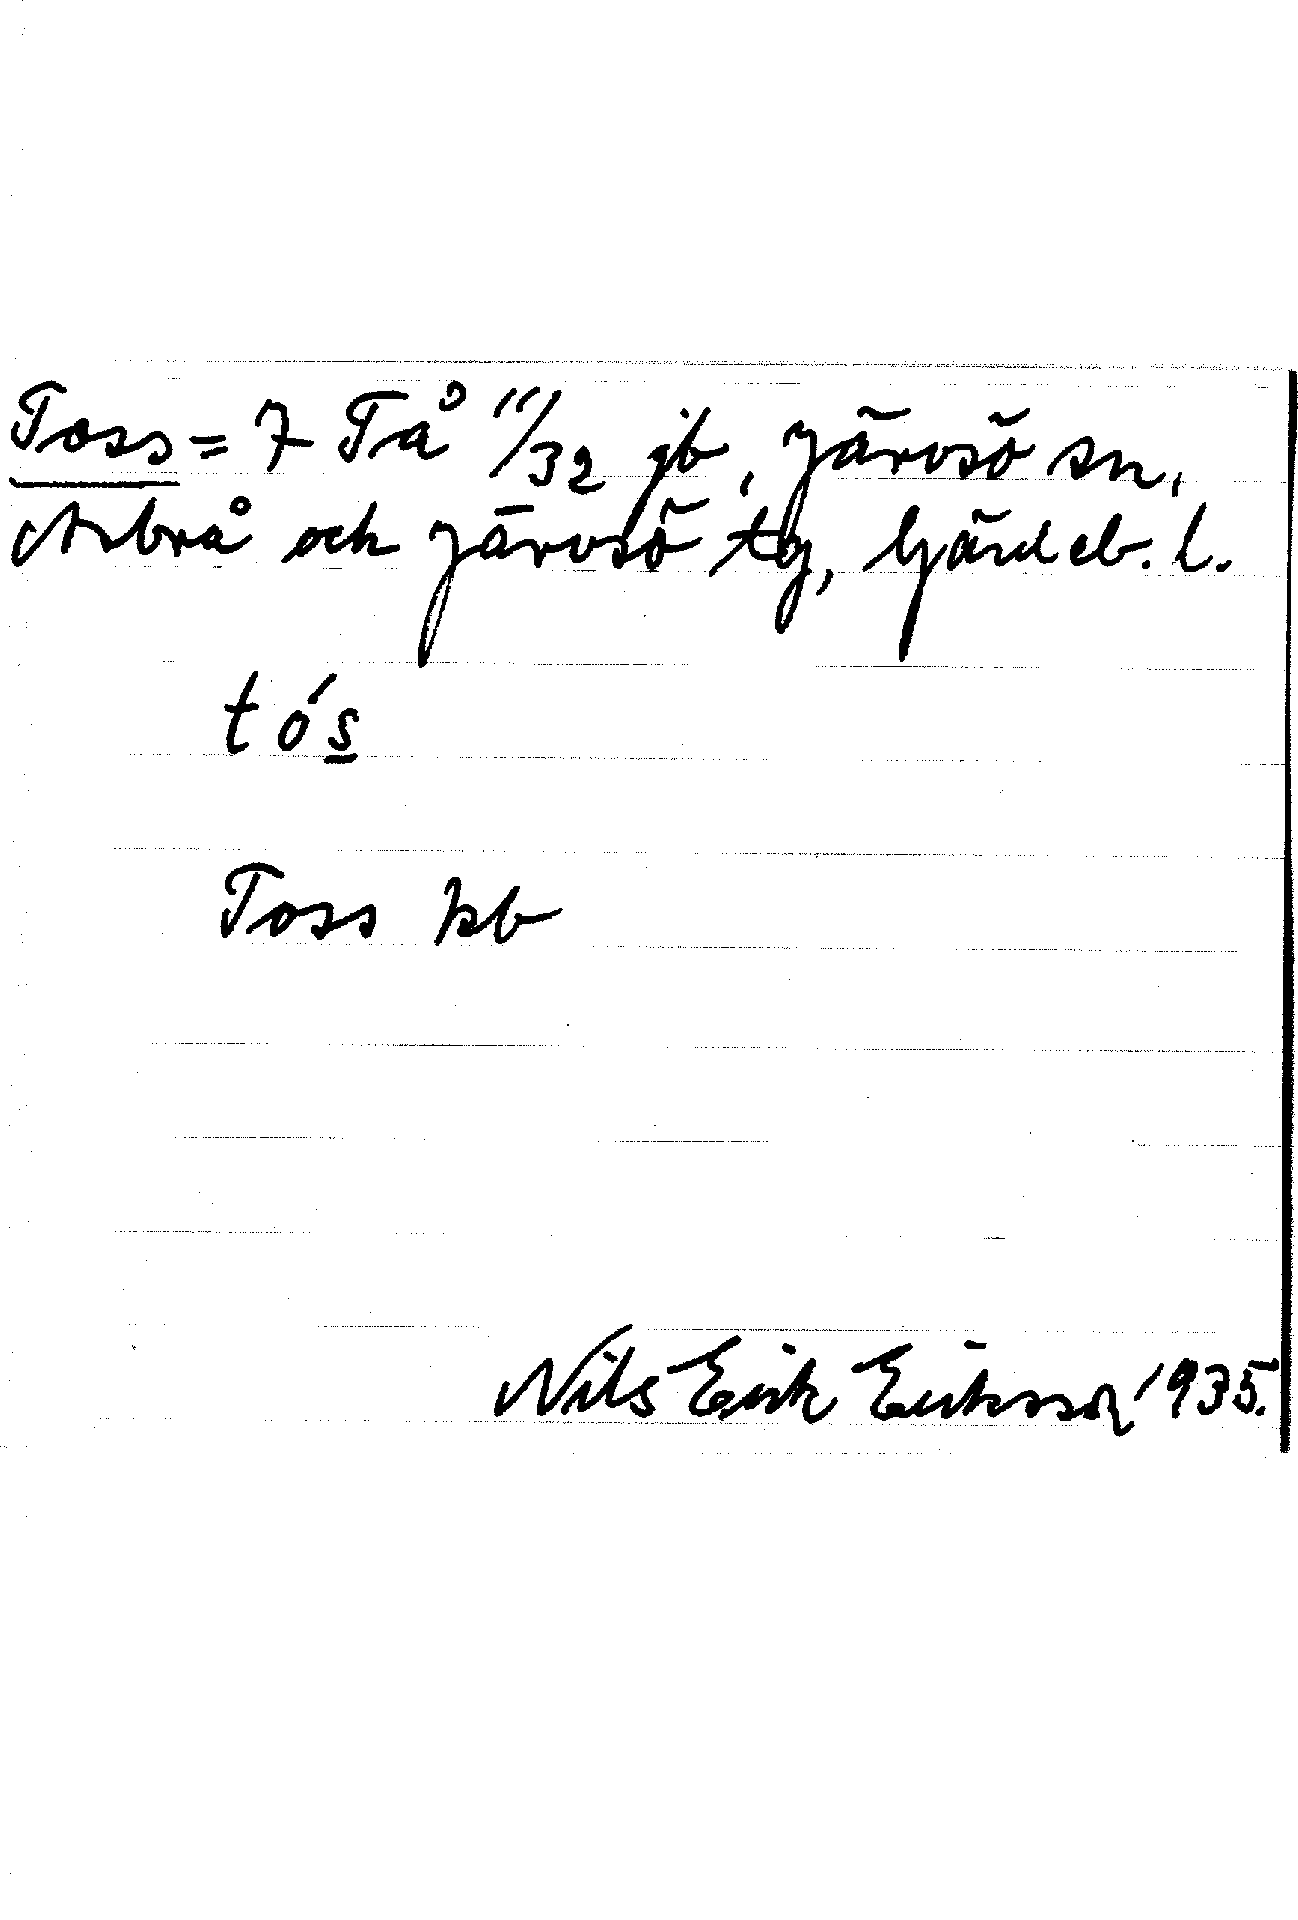 Toss = 7 Tå 11/32 jb, Järvsö sn,
Arbrå och Järvsö tg, Gävleb. l.
tós
Toss kb
Nils Erik Eriksson 1935.